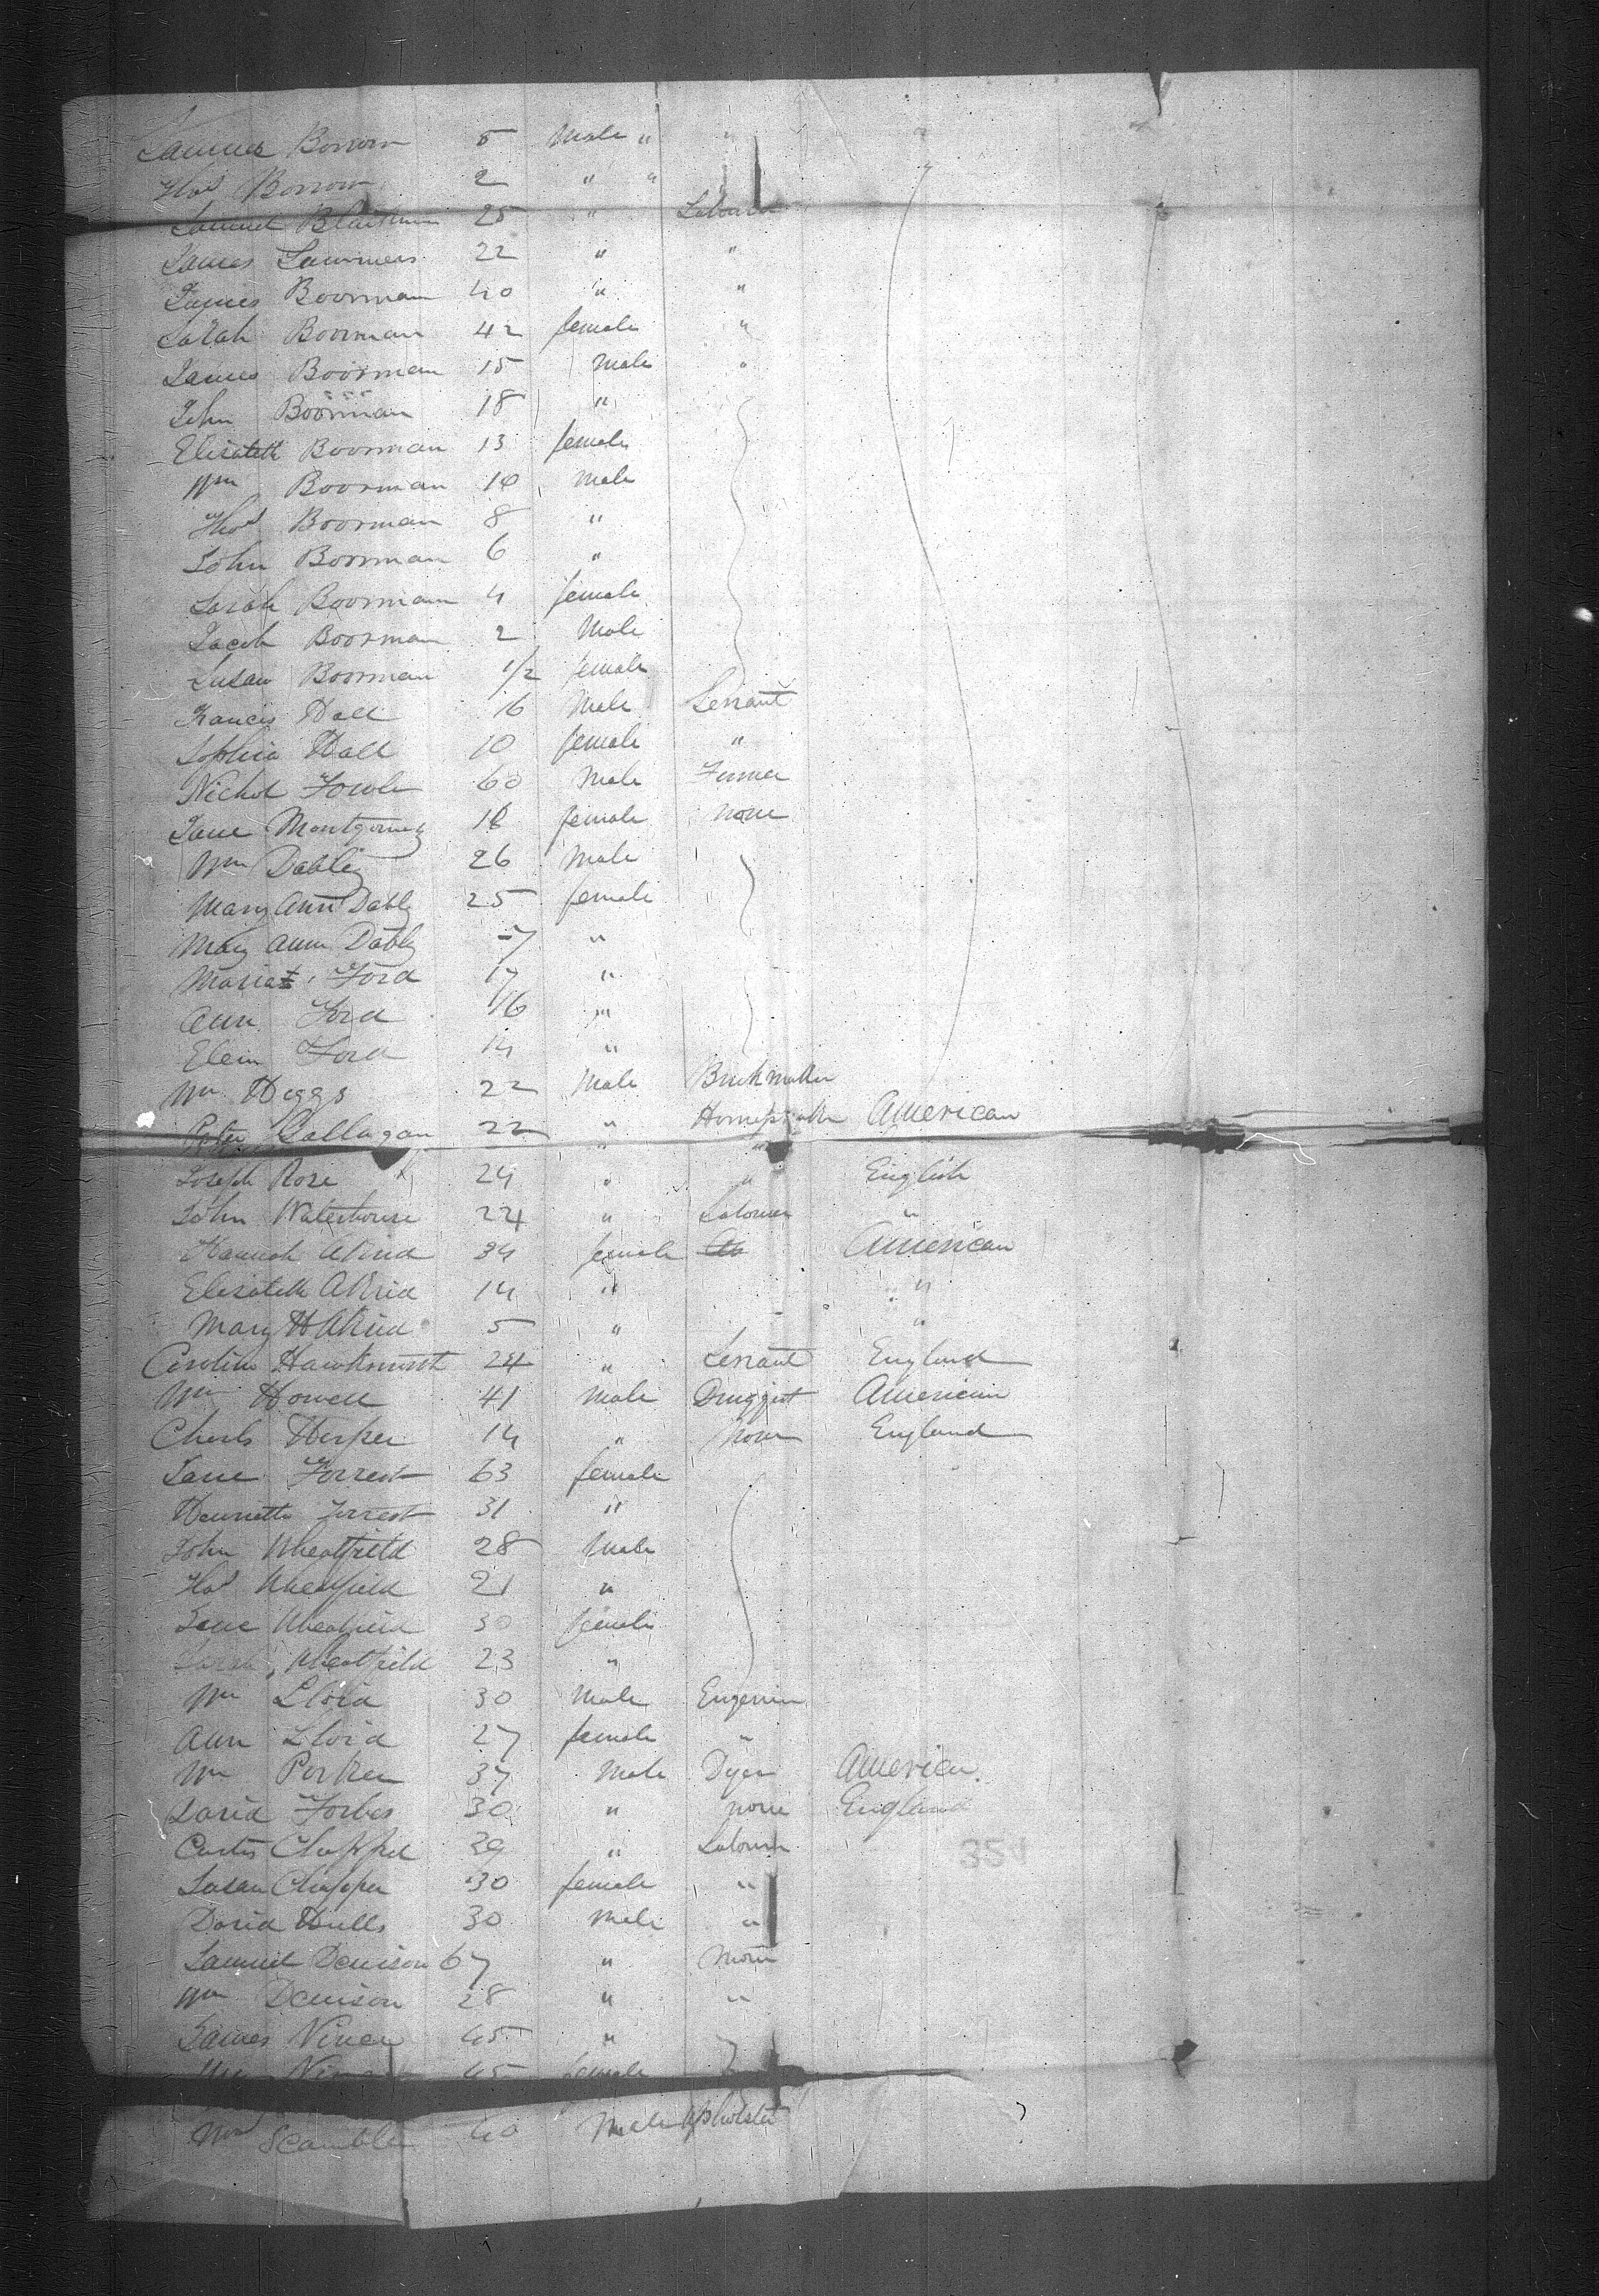 Borrow 5 Male " "
Thos Borrow 2 " "
Samuel 25 " Labourer
James Summers 22 " "
James Boorman 40 " "
Sarah Boorman 42 female "
James Boorman 15 Male "
John Boorman 18 "
Elisabeth Boorman 13 female
Wm Boorman 10 Male
Thos Boorman 8 "
John Boorman 6 "
Sarah Boorman 4 female
Jacob Boorman 2 Male
Susan Boorman 1/2 female
Francis Hall 16 Male Servant
Sophia Hall 10 female "
Nichol Fowle 60 Male Farmer
Jane Montgomery 18 female none
Wm Dably 26 Male
Mary Ann Dably 25 female
Mary Ann Dably 7 "
Maria Ford 17 "
Ann Ford 16 "
Ford 14 "
Wm Higgs 22 Male Brickmaker
Peter Gallagan 22 " American
Joseph Rose 24 " " English
John Waterhouse 24 " Labourer "
Hannah Akrid 34 female American
Elisabeth Akrid 14 " "
Mary H Akrid 5 " "
Caroline Hawkhurst 24 " Servant England
Wm Howell 41 Male Druggist American
Charls Harper 14 " None England
Jane Forrest 63 female
Henrietta Forrest 31 "
John Wheatfield 28 Male
Thos Wheatfield 21 "
Jane Wheatfield 30 female
Sarah Wheatfield 23 "
Wm Lloid 30 Male Engenier
Ann Lloid 27 female "
Wm Parker 37 Male Dyer American
David Forbes 30 " none England
Curtis Chappel 39 " Labourer
Susan Chappel 30 female "
David Hulls 30 Male "
Samuel Denison 67 " None
Wm Denison 28 " "
James Niven 45 "
45 female
Wm Scamble 40 Male Upholster
354